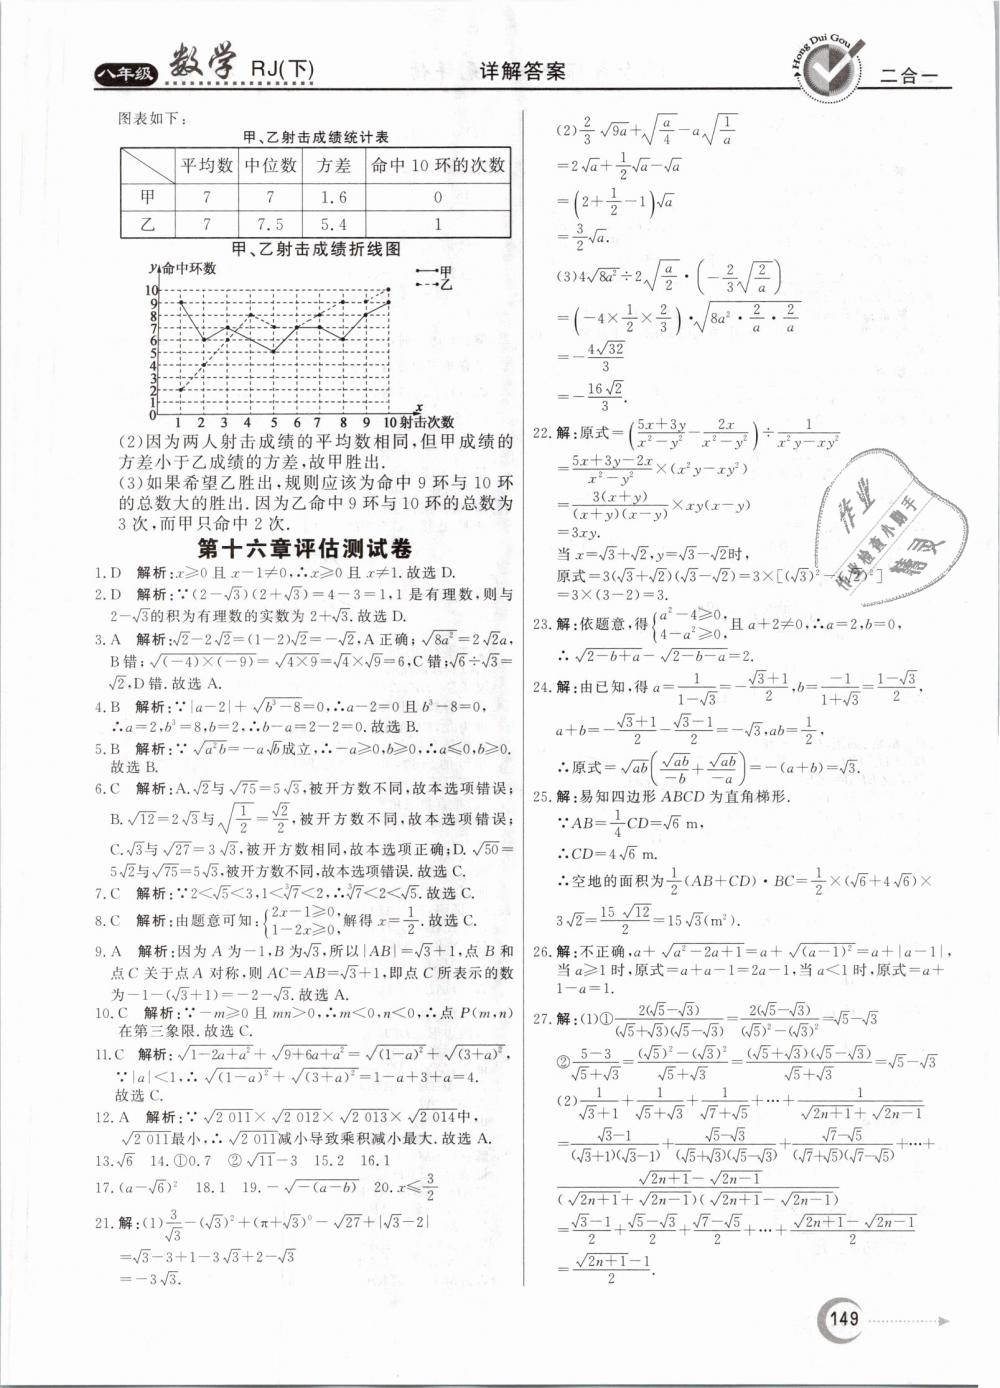 八年级 数学 RJ(下) 详解答案 Hong Dui Gou 二合一
图表如下:
甲、乙射击成绩统计表
平均数 中位数 方差 命中 10 环的次数
甲 7 7 1.6 0
乙 7 7.5 5.4 1
甲、乙射击成绩折线图
y 命中环数
甲
乙
10
9
8
7
6
5
4
3
2
1
0 1 2 3 4 5 6 7 8 9 10 射击次数 x
(2)因为两人射击成绩的平均数相同,但甲成绩的
方差小于乙成绩的方差,故甲胜出.
(3)如果希望乙胜出,规则应该为命中 9 环与 10 环
的总数大的胜出.因为乙命中 9 环与 10 环的总数为
3 次,而甲只命中 2 次.
第十六章评估测试卷
1.D 解析:x≥0 且 x-1≠0,∴x≥0 且 x≠1.故选 D.
2.D 解析:∵(2-√3)(2+√3)=4-3=1,1 是有理数,则与
2-√3的积为有理数的实数为 2+√3.故选 D.
3.A 解析:√2-2√2=(1-2)√2=-√2,A 正确;√(8a²)=2√2a,
B 错;√((-4)×(-9))=√(4×9)=√4×√9=6,C 错;√6÷√3=
√2,D 错.故选 A.
4.B 解析:∵|a-2|+√(b³-8)=0,∴a-2=0 且 b³-8=0,
∴a=2,b³=8,b=2,∴b-a=2-2=0.故选 B.
5.B 解析:∵√(a²b)=-a√b成立,∴-a≥0,b≥0,∴a≤0,b≥0.
故选 B.
6.C 解析:A.√2与√75=5√3,被开方数不同,故本选项错误;
B.√12=2√3与√(1/2)=√2/2,被开方数不同,故本选项错误;
C.√3与√27=3√3,被开方数相同,故本选项正确;D.√50=
5√2与√75=5√3,被开方数不同,故本选项错误.故选 C.
7.C 解析:∵2<√5<3,1<∛7<2,∴∛7<2<√5.故选 C.
8.C 解析:由题意可知:{2x-1≥0, 1-2x≥0, 解得 x=1/2.故选 C.
9.A 解析:因为 A 为-1,B 为√3,所以|AB|=√3+1,点 B 和
点 C 关于点 A 对称,则 AC=AB=√3+1,即点 C 所表示的数
为-1-(√3+1)=-2-√3.故选 A.
10.C 解析:∵-m≥0 且 mn>0,∴m<0,n<0,∴点 P(m,n)
在第三象限.故选 C.
11.C 解析:√(1-2a+a²)+√(9+6a+a²)=√((1-a)²)+√((3+a)²),
∵|a|<1,∴√((1-a)²)+√((3+a)²)=1-a+3+a=4.
故选 C.
12.A 解析:∵√2 011×√2 012×√2 013×√2 014中,
√2 011最小,∴√2 011减小导致乘积减小最大.故选 A.
13.√6 14.①0.7 ②√11-3 15.2 16.1
17.(a-√6)² 18.1 19.-√(-(a-b)) 20.x≤3/2
21.解:(1)3/√3-(√3)²+(π+√3)⁰-√27+|√3-2|
=√3-3+1-3√3+2-√3
=-3√3.
(2)2/3√(9a)+√(a/4)-a√(1/a)
=2√a+1/2√a-√a
=(2+1/2-1)√a
=3/2√a.
(3)4√(8a²)÷2√(a/2)·(-2/3√(2/a))
=(-4×1/2×2/3)·√(8a²·2/a·2/a)
=-4√32/3
=-16√2/3.
22.解:原式=((5x+3y)/(x²-y²)-2x/(x²-y²))÷1/(x²y-xy²)
=(5x+3y-2x)/(x²-y²)×(x²y-xy²)
=3(x+y)/((x+y)(x-y))×xy(x-y)
=3xy.
当 x=√3+√2,y=√3-√2时,
原式=3(√3+√2)(√3-√2)=3×[(√3)²-(√2)²]
=3×(3-2)=3.
23.解:依题意,得{a²-4≥0, 4-a²≥0, 且 a+2≠0,∴a=2,b=0,
∴√(2-b+a)-√(2-b-a)=2.
24.解:由已知,得 a=1/(1-√3)=-(√3+1)/2,b=-1/(1+√3)=(1-√3)/2,
a+b=-(√3+1)/2-(√3-1)/2=-√3,ab=1/2,
∴原式=√(ab)(√(ab)/(-b)+√(ab)/(-a))=-(a+b)=√3.
25.解:易知四边形 ABCD 为直角梯形.
∵AB=1/4CD=√6 m,
∴CD=4√6 m.
∴空地的面积为1/2(AB+CD)·BC=1/2×(√6+4√6)×
3√2=15√12/2=15√3(m²).
26.解:不正确,a+√(a²-2a+1)=a+√((a-1)²)=a+|a-1|,
当 a≥1 时,原式=a+a-1=2a-1,当 a<1 时,原式=a+
1-a=1.
27.解:(1)①2(√5-√3)/((√5+√3)(√5-√3))=2(√5-√3)/((√5)²-(√3)²)=√5-√3
②(5-3)/(√5+√3)=((√5)²-(√3)²)/(√5+√3)=(√5+√3)(√5-√3)/(√5+√3)=√5-√3
(2)1/(√3+1)+1/(√5+√3)+1/(√7+√5)+…+1/(√(2n+1)+√(2n-1))
=(√3-1)/((√3+1)(√3-1))+(√5-√3)/((√5+√3)(√5-√3))+(√7-√5)/((√7+√5)(√7-√5))+…+
(√(2n+1)-√(2n-1))/((√(2n+1)+√(2n-1))(√(2n+1)-√(2n-1)))
=(√3-1)/2+(√5-√3)/2+(√7-√5)/2+…+(√(2n+1)-√(2n-1))/2
=(√(2n+1)-1)/2.
作业
作业检查小助手
精灵
149